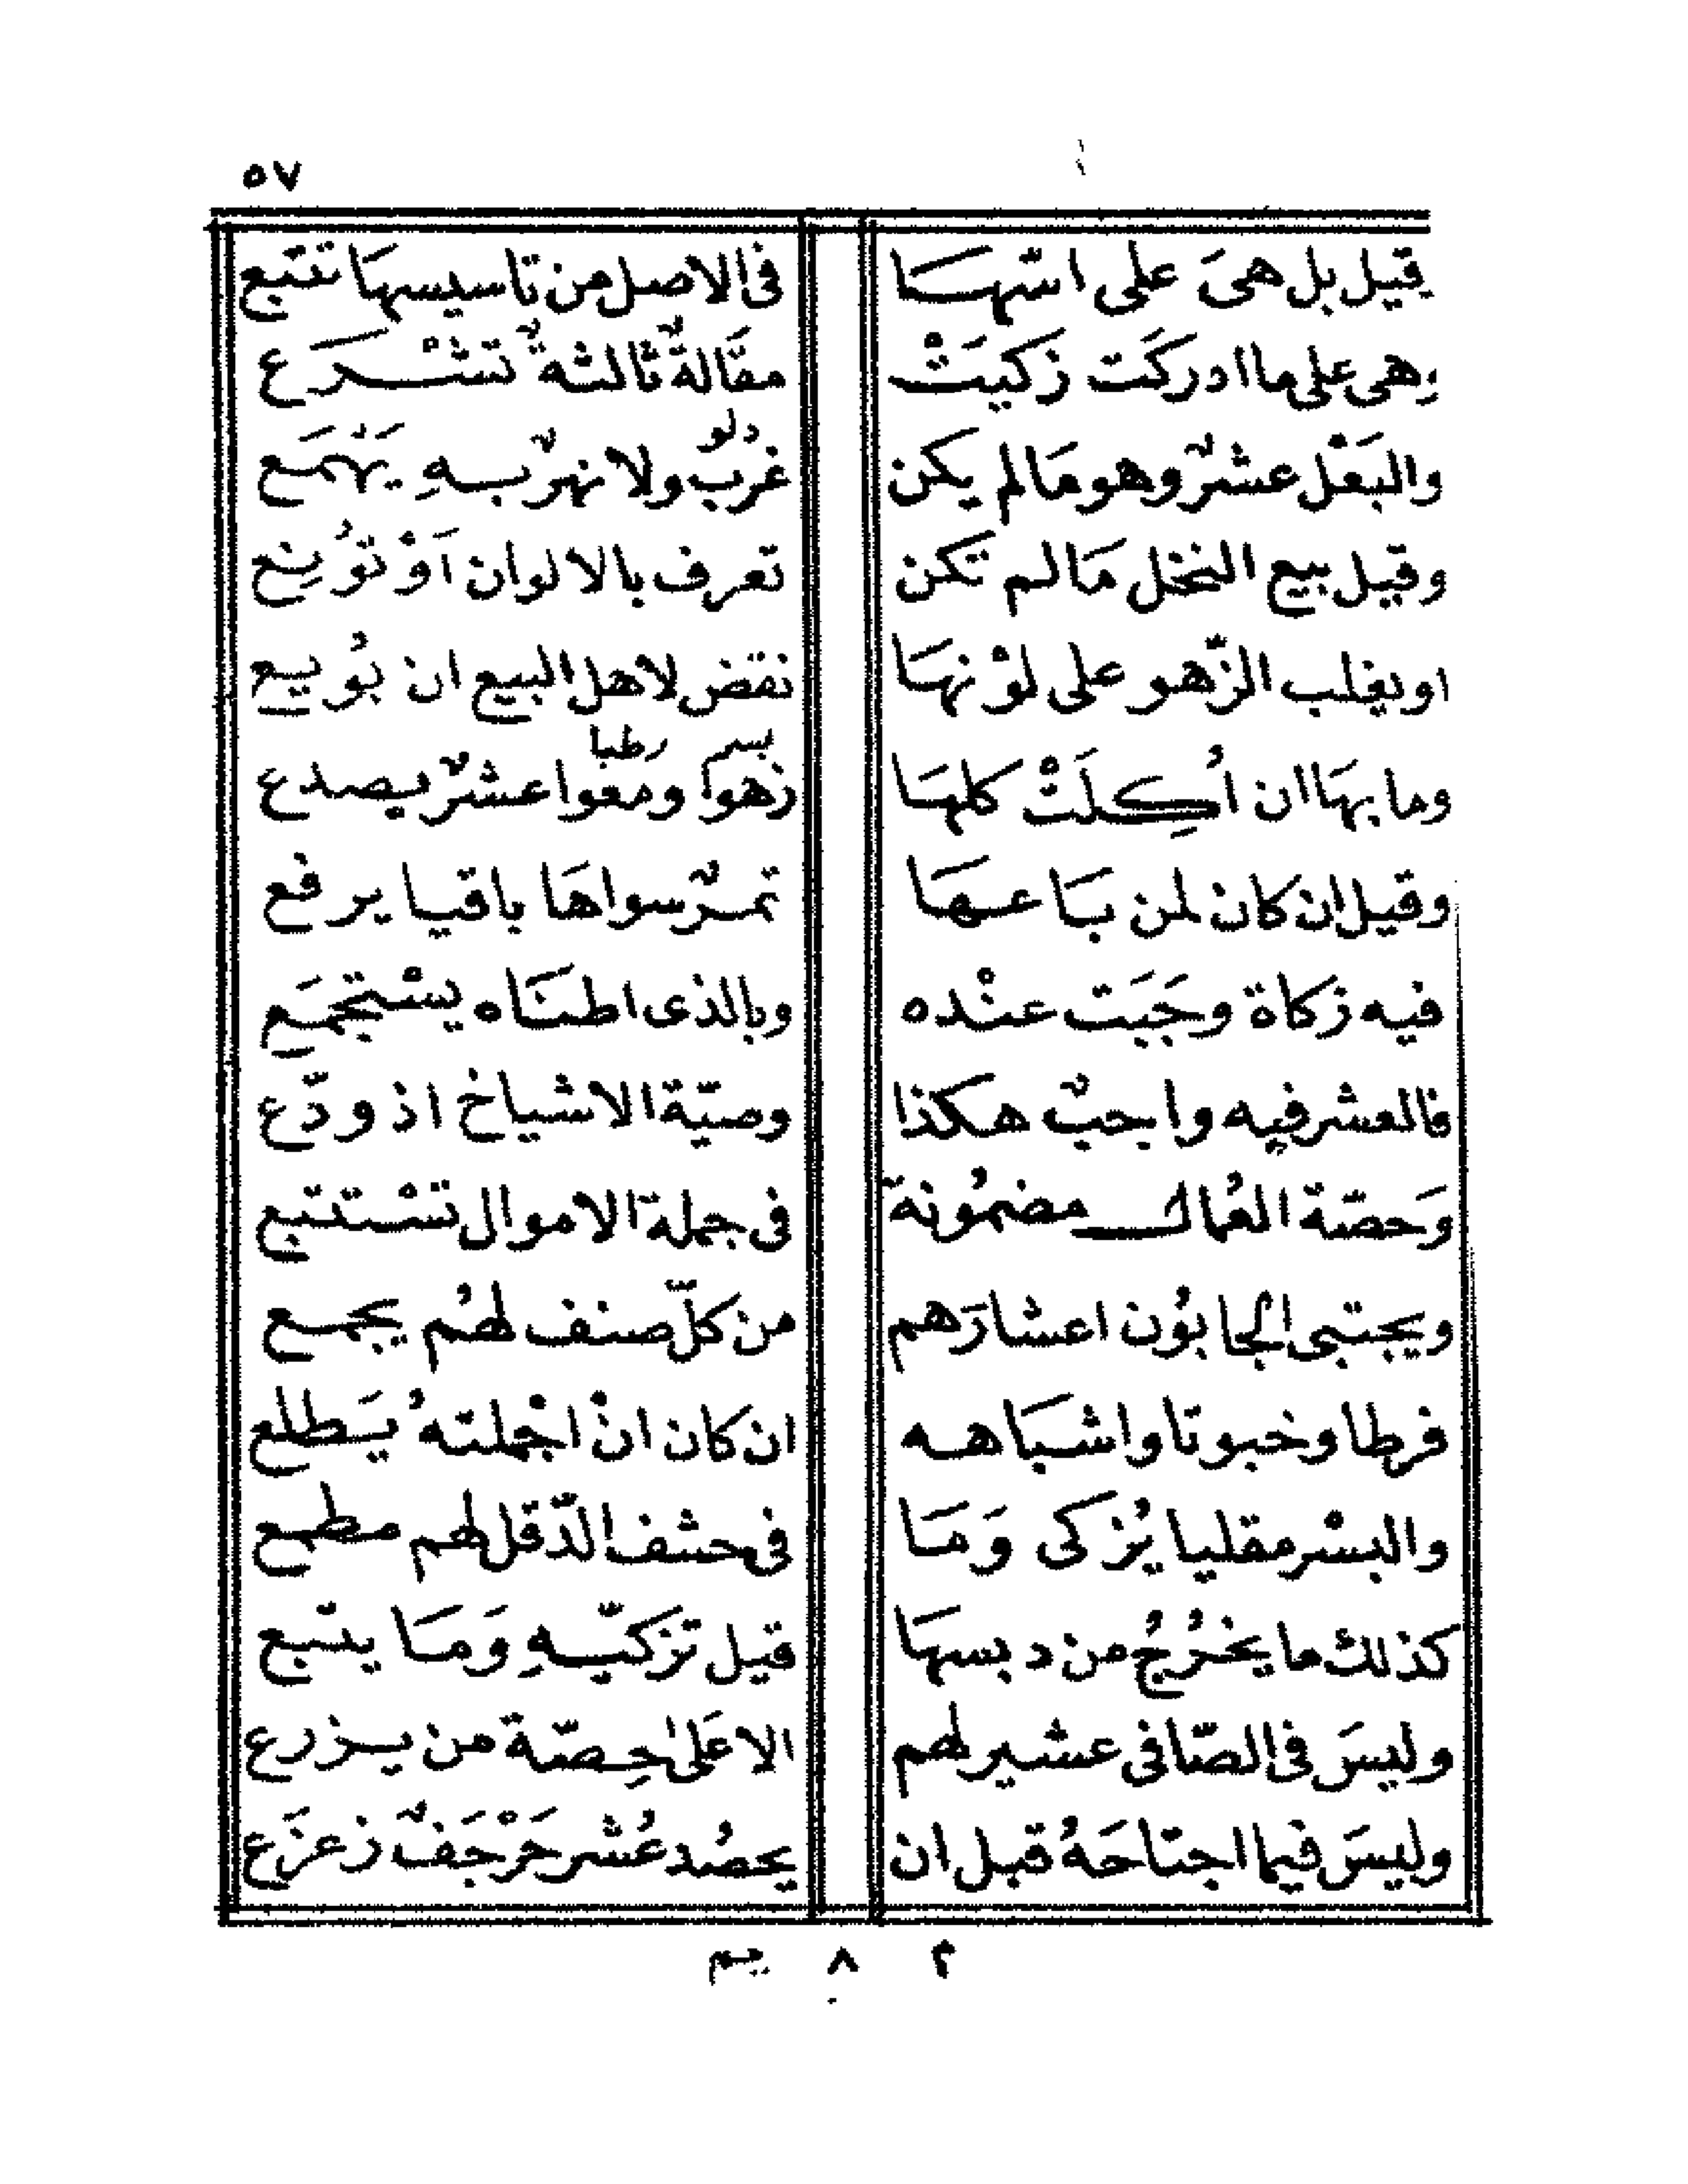 ٥٧
قيل بل هىَ على اسّهَا في الاصل من تاسيسهَا تتبع
وهى على ما ادركَت زكيَتْ مقَالةٌ ثالثةٌ تشْرَع
والبَعْل عشرٌ وهو مَالم يكن غرْبٌ ولا نهرٌ بهِ يَهْمَع
دلو
وقيل بيع النخل مَالم تكن تعرف بالالوان اَوْ توُنِع
او يغلب الزّهو على لوْنهَا نقض لاهل البيع ان بُويع
وما بهَا ان اُكِلَتْ كلهَا زهوا ومعوا عشرٌ يصدع
بسر رطبا
وقيل ان كان لمن بَاعهَا تمرٌ سواهَا باقيا يرفع
فيه زكاة وجَبَت عنْده وبالذى اطنَاه يسْتجمَع
فالعشر فيه واجبٌ هكذا وصيّة الاشياخ اذ ودّع
وَحصّة العُمال مضمُونة في جملة الاموال تسْتتبع
ويجتبى الجابُون اعشارَهم من كلّ صنف لهُم يجمع
فرطا وخبوتا واشبَاهه ان كان انْ اجْملتهُ يَطلع
والبسْر مقليا يُزكى وَمَا في حشف الدّقل لهم مطمع
كذلك ما يخرُجُ من دبسهَا قيل تزكّيهِ وَمَا يتّبع
وليسَ في الصّافي عشير لهم الا عَلىٰ حِصّة من يزرع
وليسَ فيما اجتاحَهُ قبل ان يحصُد عُشر حَرْجَفٌ زعزَع
م ٨ يم